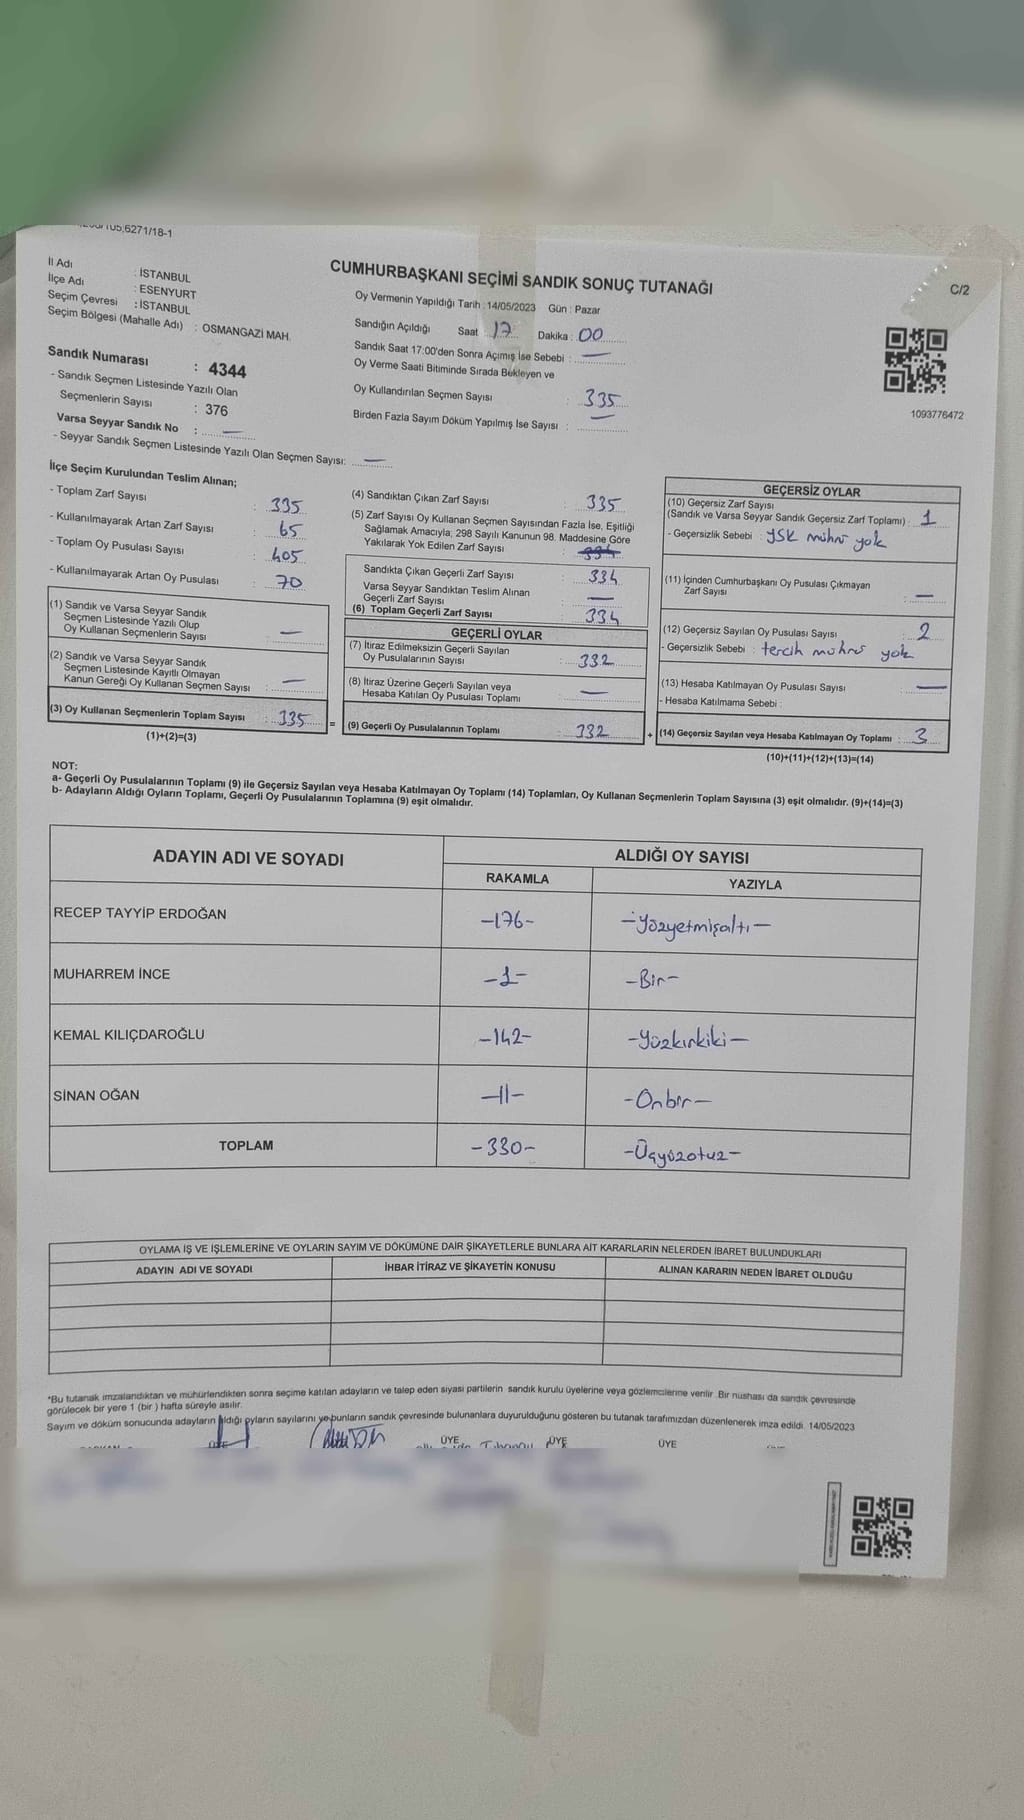 6271/18-1
İl Adı : İSTANBUL
İlçe Adı : ESENYURT
Seçim Çevresi : İSTANBUL
Seçim Bölgesi (Mahalle Adı) : OSMANGAZİ MAH.
Sandık Numarası : 4344
- Sandık Seçmen Listesinde Yazılı Olan
Seçmenlerin Sayısı : 376
Varsa Seyyar Sandık No : —
- Seyyar Sandık Seçmen Listesinde Yazılı Olan Seçmen Sayısı: —
CUMHURBAŞKANI SEÇİMİ SANDIK SONUÇ TUTANAĞI
C/2
Oy Vermenin Yapıldığı Tarih : 14/05/2023 Gün : Pazar
Sandığın Açıldığı Saat : 17 Dakika : 00
Sandık Saat 17:00'den Sonra Açımış İse Sebebi : —
Oy Verme Saati Bitiminde Sırada Bekleyen ve
Oy Kullandırılan Seçmen Sayısı : 335
Birden Fazla Sayım Döküm Yapılmış İse Sayısı : —
1093776472
İlçe Seçim Kurulundan Teslim Alınan;
- Toplam Zarf Sayısı : 395
- Kullanılmayarak Artan Zarf Sayısı : 65
- Toplam Oy Pusulası Sayısı : 405
- Kullanılmayarak Artan Oy Pusulası : 70
(1) Sandık ve Varsa Seyyar Sandık
Seçmen Listesinde Yazılı Olup
Oy Kullanan Seçmenlerin Sayısı : —
(2) Sandık ve Varsa Seyyar Sandık
Seçmen Listesinde Kayıtlı Olmayan
Kanun Gereği Oy Kullanan Seçmen Sayısı : —
(3) Oy Kullanan Seçmenlerin Toplam Sayısı : 335 =
(1)+(2)=(3)
(4) Sandıktan Çıkan Zarf Sayısı : 335
(5) Zarf Sayısı Oy Kullanan Seçmen Sayısından Fazla İse, Eşitliği
Sağlamak Amacıyla, 298 Sayılı Kanunun 98. Maddesine Göre
Yakılarak Yok Edilen Zarf Sayısı : 334
Sandıkta Çıkan Geçerli Zarf Sayısı : 334
Varsa Seyyar Sandıktan Teslim Alınan
Geçerli Zarf Sayısı : —
(6) Toplam Geçerli Zarf Sayısı : 334
GEÇERLİ OYLAR
(7) İtiraz Edilmeksizin Geçerli Sayılan
Oy Pusulalarının Sayısı : 332
(8) İtiraz Üzerine Geçerli Sayılan veya
Hesaba Katılan Oy Pusulası Toplamı : —
(9) Geçerli Oy Pusulalarının Toplamı : 332 +
GEÇERSİZ OYLAR
(10) Geçersiz Zarf Sayısı
(Sandık ve Varsa Seyyar Sandık Geçersiz Zarf Toplamı) : 1
- Geçersizlik Sebebi : YSK mührü yok
(11) İçinden Cumhurbaşkanı Oy Pusulası Çıkmayan
Zarf Sayısı : —
(12) Geçersiz Sayılan Oy Pusulası Sayısı : 2
- Geçersizlik Sebebi : tercih mührü yok
(13) Hesaba Katılmayan Oy Pusulası Sayısı : —
- Hesaba Katılmama Sebebi :
(14) Geçersiz Sayılan veya Hesaba Katılmayan Oy Toplamı : 3
(10)+(11)+(12)+(13)=(14)
NOT:
a- Geçerli Oy Pusulalarının Toplamı (9) ile Geçersiz Sayılan veya Hesaba Katılmayan Oy Toplamı (14) Toplamları, Oy Kullanan Seçmenlerin Toplam Sayısına (3) eşit olmalıdır. (9)+(14)=(3)
b- Adayların Aldığı Oyların Toplamı, Geçerli Oy Pusulalarının Toplamına (9) eşit olmalıdır.
ADAYIN ADI VE SOYADI ALDIĞI OY SAYISI
RAKAMLA YAZIYLA
RECEP TAYYİP ERDOĞAN -176- -Yüzyetmişaltı-
MUHARREM İNCE -1- -Bir-
KEMAL KILIÇDAROĞLU -142- -Yüzkırkiki-
SİNAN OĞAN -11- -Onbir-
TOPLAM -330- -Üçyüzotuz-
OYLAMA İŞ VE İŞLEMLERİNE VE OYLARIN SAYIM VE DÖKÜMÜNE DAİR ŞİKAYETLERLE BUNLARA AİT KARARLARIN NELERDEN İBARET BULUNDUKLARI
ADAYIN ADI VE SOYADI İHBAR İTİRAZ VE ŞİKAYETİN KONUSU ALINAN KARARIN NEDEN İBARET OLDUĞU
*Bu tutanak imzalandıktan ve mühürlendikten sonra seçime katılan adayların ve talep eden siyasi partilerin sandık kurulu üyelerine veya gözlemcilerine verilir. Bir nüshası da sandık çevresinde
görülecek bir yere 1 (bir) hafta süreyle asılır.
Sayım ve döküm sonucunda adayların aldığı oyların sayılarını ve bunların sandık çevresinde bulunanlara duyurulduğunu gösteren bu tutanak tarafımızdan düzenlenerek imza edildi. 14/05/2023
ÜYE ÜYE ÜYE